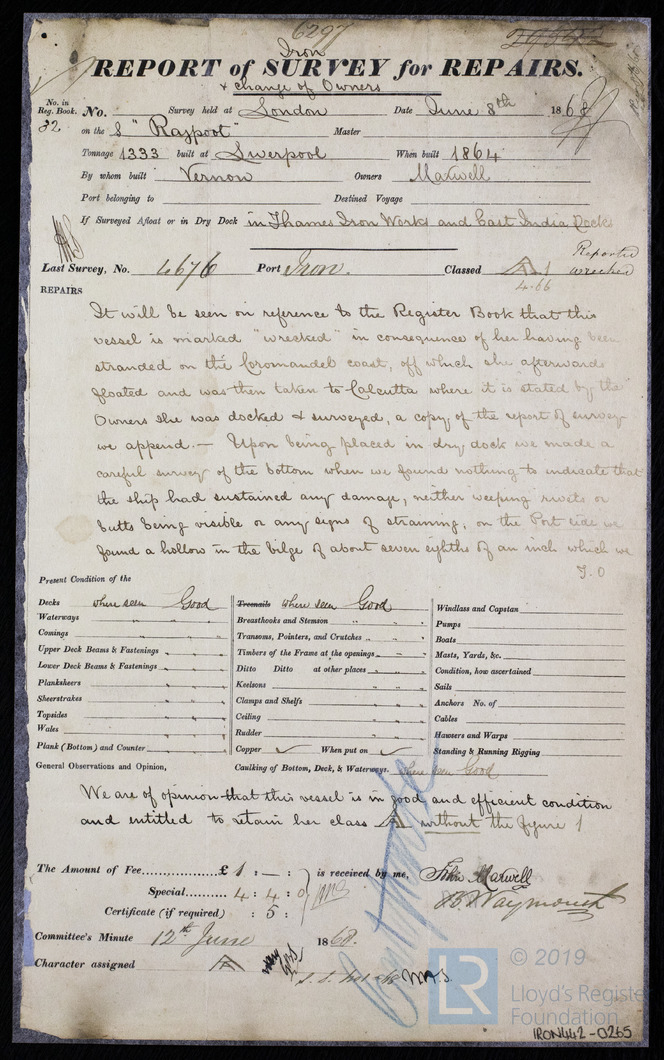 6297
Iron
REPORT of SURVEY for REPAIRS.
& change of Owners
No. in Reg. Book. No. Survey held at London Date June 8th 1868
32 on the S "Rajpoot" Master
Tonnage 1333 built at Liverpool When built 1864
By whom built Vernon Owners Maxwell
Port belonging to Destined Voyage
If Surveyed Afloat or in Dry Dock in Thames Iron Works and East India Docks
Last Survey, No. 4676 Port Iron. Classed A 1 Reported wrecked
4.66
REPAIRS
It will be seen on reference to the Register Book that this
vessel is marked "wrecked" in consequence of her having been
stranded on the Coromandel coast, off which she afterwards
floated and was then taken to Calcutta where it is stated by the
Owners she was docked & surveyed, a copy of the report of survey
we append. — Upon being placed in dry dock we made a
careful survey of the bottom when we found nothing to indicate that
the ship had sustained any damage, neither weeping rivets or
butts being visible or any signs of straining, on the Port side we
found a hollow in the bilge of about seven eighths of an inch which we
T.O
Present Condition of the
Decks where seen Good
Waterways " " "
Comings " " "
Upper Deck Beams & Fastenings " " "
Lower Deck Beams & Fastenings " " "
Planksheers " " "
Sheerstrakes " " "
Topsides " " "
Wales " " "
Plank (Bottom) and Counter
Treenails where seen Good
Breasthooks and Stemson " " "
Transoms, Pointers, and Crutches " " "
Timbers of the Frame at the openings " " "
Ditto Ditto at other places " " "
Keelsons " " "
Clamps and Shelfs " " "
Ceiling " " "
Rudder " " "
Copper ✓ When put on ✓
Caulking of Bottom, Deck, & Waterways. where seen Good
Windlass and Capstan
Pumps
Boats
Masts, Yards, &c.
Condition, how ascertained
Sails
Anchors No. of
Cables
Hawsers and Warps
Standing & Running Rigging
General Observations and Opinion,
We are of opinion that this vessel is in good and efficient condition
and entitled to retain her class A without the figure 1
The Amount of Fee £ 1 : — : is received by me, John Maxwell
Special 4 : 4 : 0 B. Waymouth
Certificate (if required) : 5 :
Committee's Minute 12th June 1868.
Character assigned A
© 2019
LR Lloyd's Register
Foundation
IRON442-0265